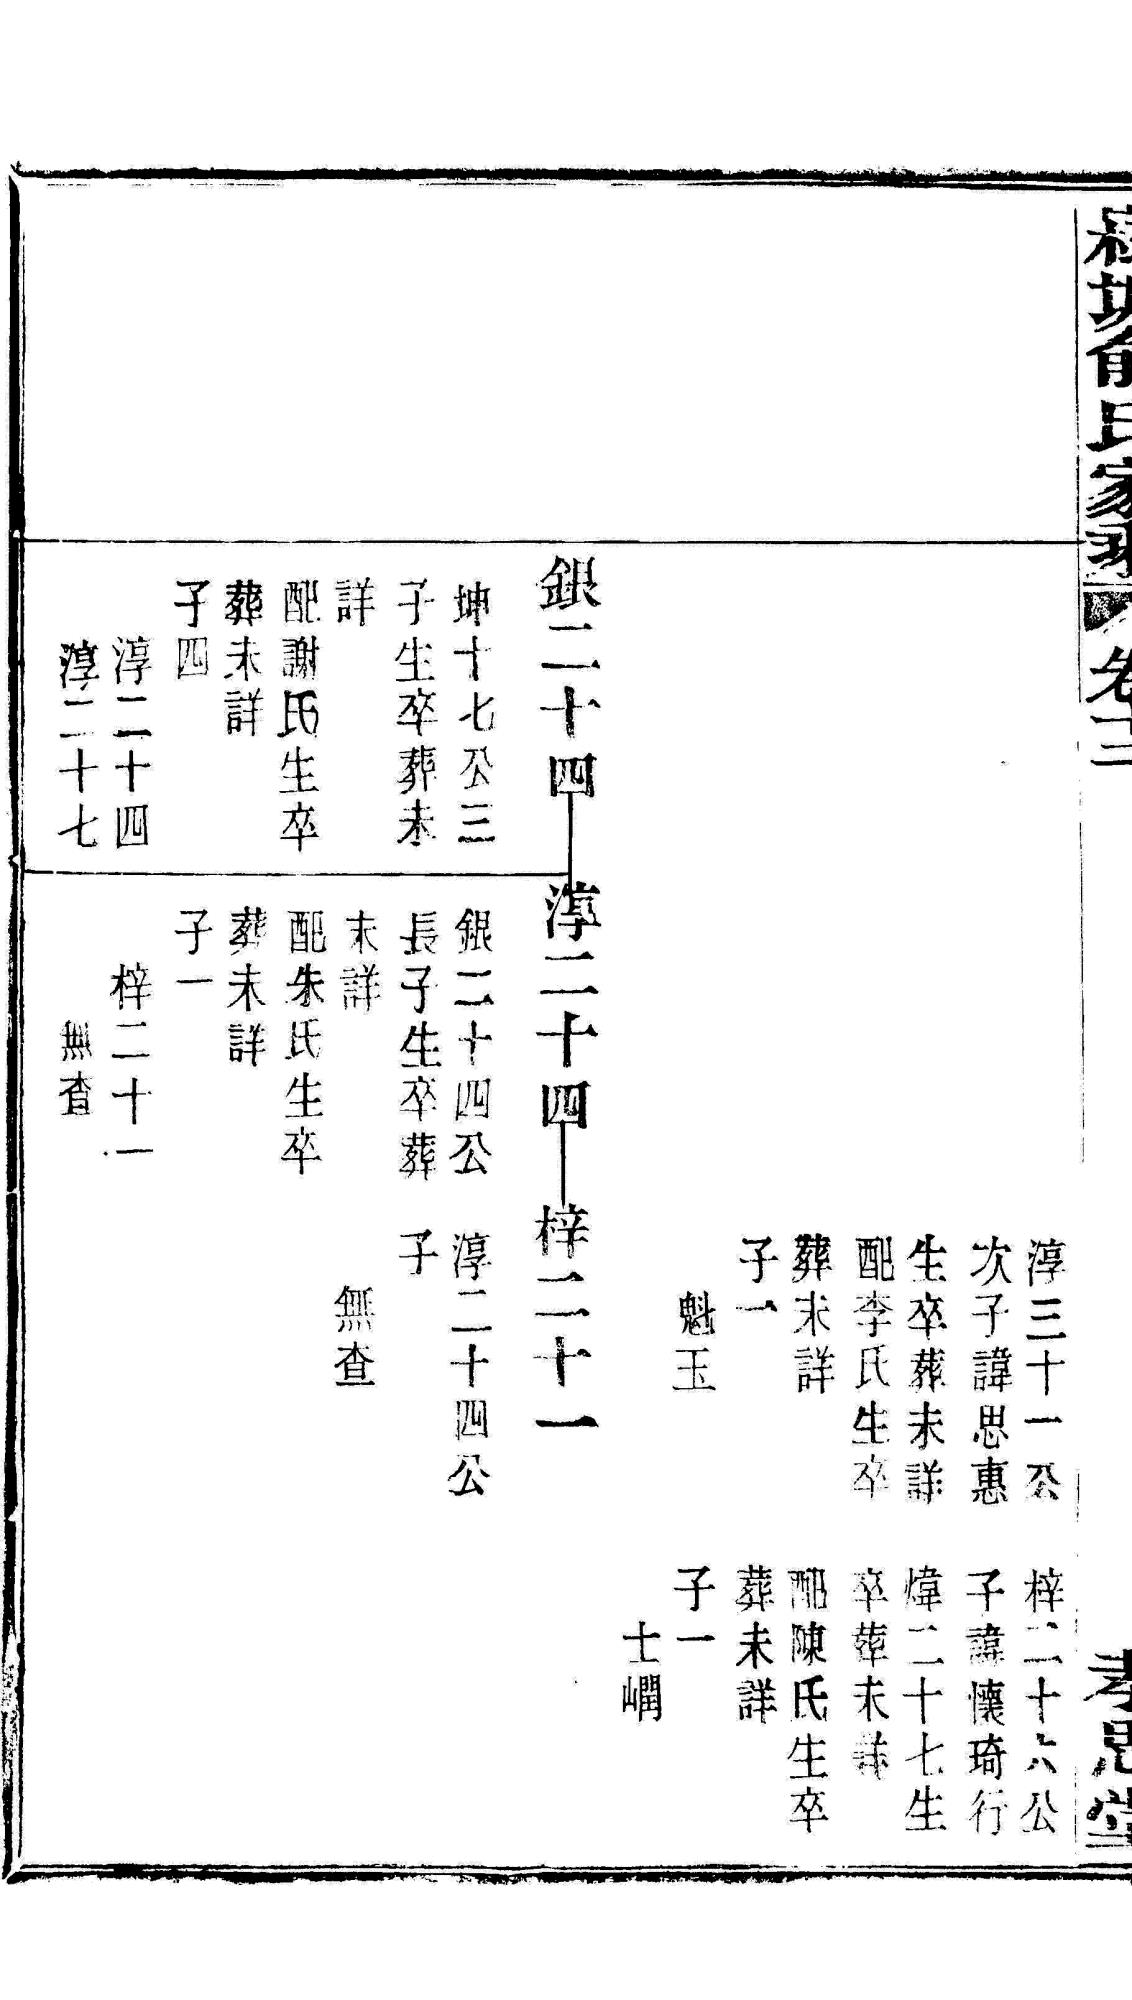 俞氏家乘
卷十三
孝思堂
淳三十一公
次子諱思惠
生卒葬未詳
配李氏生卒
葬未詳
子一
魁玉
梓二十六公
子諱懷琦行
煒二十七生
卒葬未詳
配陳氏生卒
葬未詳
子一
士㠛
銀二十四
坤十七公三
子生卒葬未
詳
配謝氏生卒
葬未詳
子四
淳二十四
淳二十七
淳二十四
銀二十四公
長子生卒葬
未詳
配朱氏生卒
葬未詳
子一
梓二十一
無查
梓二十一
淳二十四公
子
無查